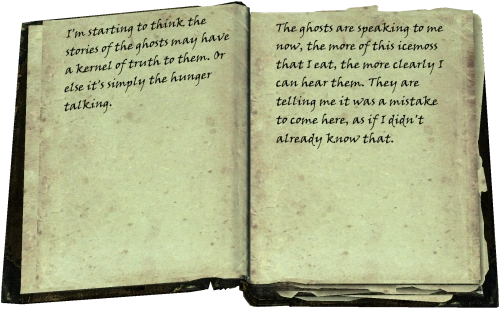 I'm starting to think the
stories of the ghosts may have
a kernel of truth to them. Or
else it's simply the hunger
talking.
The ghosts are speaking to me
now, the more of this icemoss
that I eat, the more clearly I
can hear them. They are
telling me it was a mistake
to come here, as if I didn't
already know that.